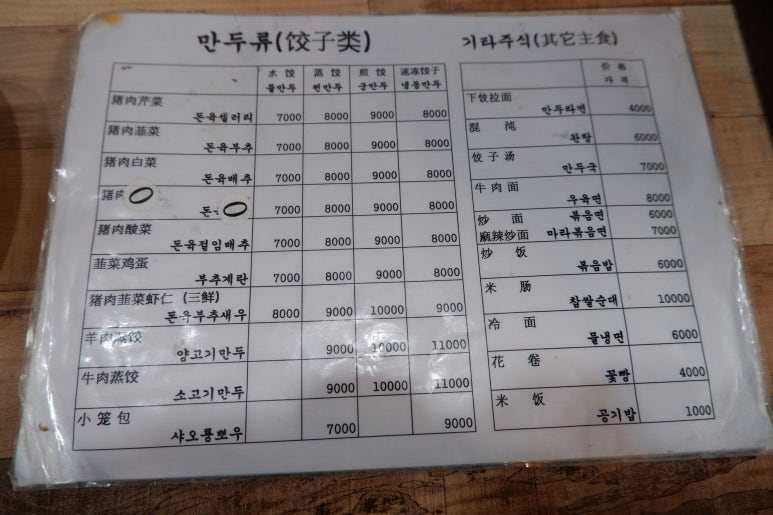 만두류(饺子类)
水饺 蒸饺 煎饺 速冻饺子
물만두 찐만두 군만두 냉동만두
猪肉芹菜
돈육샐러리 7000 8000 9000 8000
猪肉韭菜
돈육부추 7000 8000 9000 8000
猪肉白菜
돈육배추 7000 8000 9000 8000
猪肉
돈 7000 8000 9000 8000
猪肉酸菜
돈육절임배추 7000 8000 9000 8000
韭菜鸡蛋
부추계란 7000 8000 9000 8000
猪肉韭菜虾仁 (三鲜)
돈육부추새우 8000 9000 10000 9000
羊肉蒸饺
양고기만두 9000 10000 11000
牛肉蒸饺
소고기만두 9000 10000 11000
小笼包
샤오롱뽀우 7000 9000
기타주식(其它主食)
价格
가격
下饺拉面
만두라면 4000
混沌
완탕 6000
饺子汤
만두국 7000
牛肉面
우육면 8000
炒面 볶음면 6000
麻辣炒面 마라볶음면 7000
炒饭
볶음밥 6000
米肠
찹쌀순대 10000
冷面
물냉면 6000
花卷
꽃빵 4000
米饭
공기밥 1000